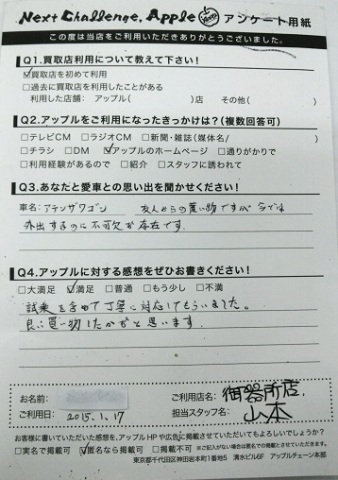 Next Challenge, Apple アンケート用紙
この度は当店をご利用いただきありがとうございました。
Q1.買取店利用について教えて下さい!
☑買取店を初めて利用
□過去に買取店を利用したことがある
利用した店舗: アップル( )店 その他( )
Q2.アップルをご利用になったきっかけは?(複数回答可)
□テレビCM □ラジオCM □新聞・雑誌(媒体名/ )
□チラシ □DM ☑アップルのホームページ □通りがかりで
□利用経験があるので □紹介 □スタッフに誘われて
Q3.あなたと愛車との思い出を聞かせください!
車名:アテンザワゴン 友人からの買い物ですが今では
外出するのに不可欠な存在です.
Q4.アップルに対する感想をぜひお書きください!
□大満足 ☑満足 □普通 □もう少し □不満
試乗を含めて丁寧に対応してもらいました。
良い買い物したかなと思います.
お名前: ご利用店名: 御器所店.
ご利用日: 2015.1.17 担当スタッフ名: 山本
お客様に書いていただいた感想を、アップルHPや広告に掲載させていただいてもよろしいでしょうか?
□実名で掲載可 ☑匿名なら掲載可 □掲載不可 ※ご記入がない場合は匿名での掲載とさせていただきます。
東京都千代田区神田岩本町1番地5 清水ビル6F アップルチェーン本部